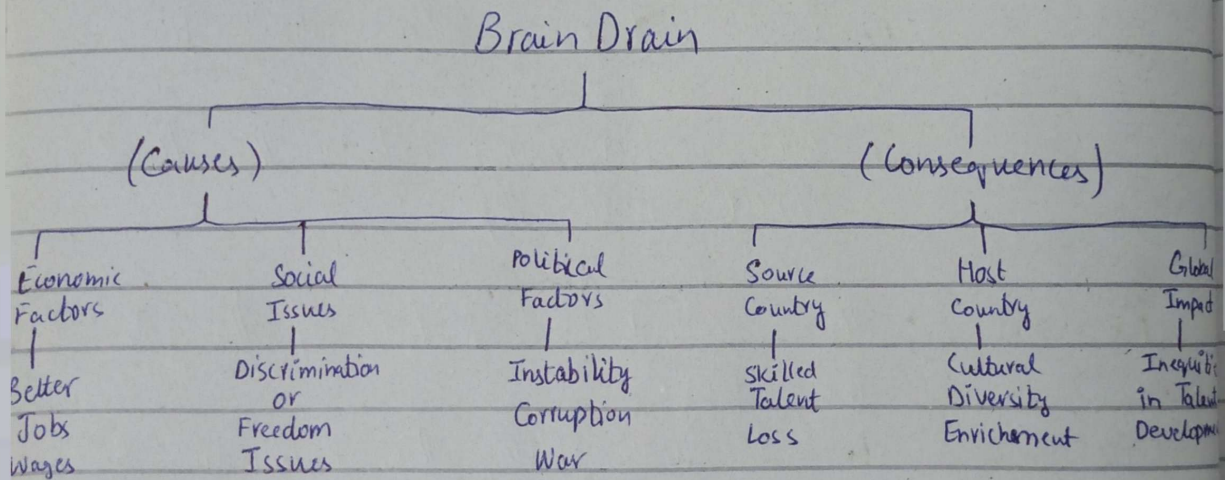 Brain Drain
(Causes)
(Consequences)
Economic
Factors
Better
Jobs
Wages
Social
Issues
Discrimination
or
Freedom
Issues
Political
Factors
Instability
Corruption
War
Source
Country
Skilled
Talent
Loss
Host
Country
Cultural
Diversity
Enrichement
Global
Impact
Inequiti
in Talent
Developme